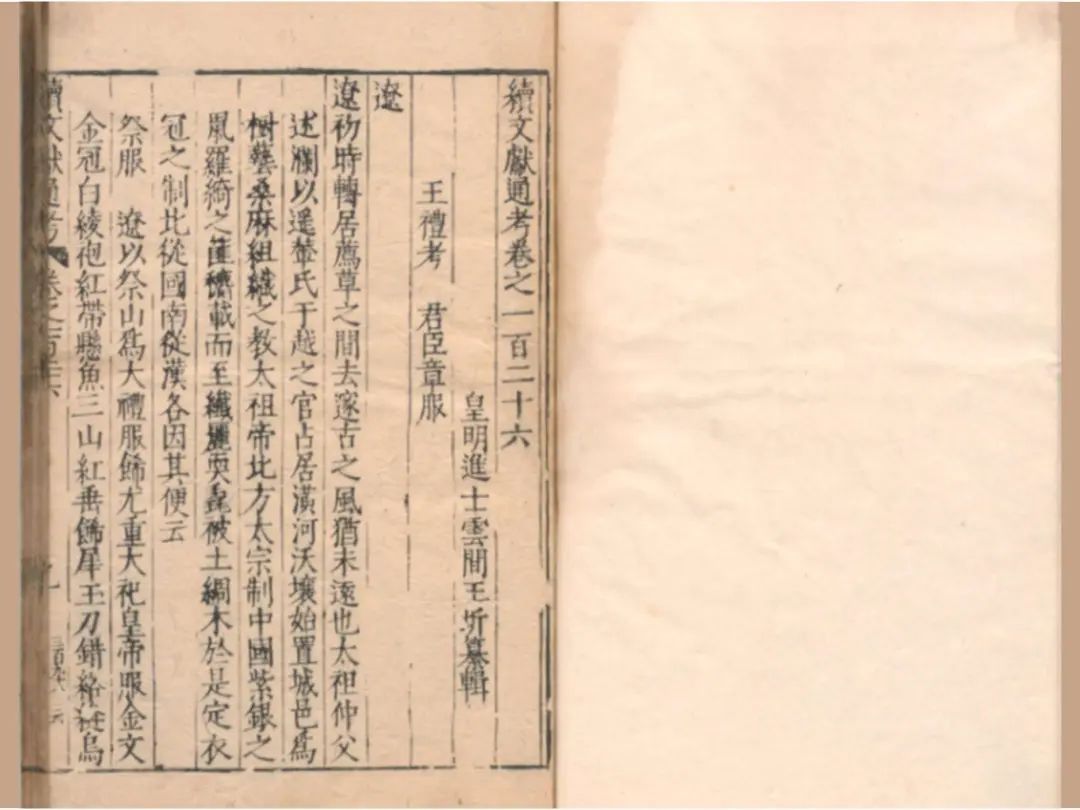 續文獻通考卷之一百二十六
皇明進士雲間王圻纂輯
王禮考 君臣章服
遼
遼初時轉居薦草之間去邃古之風猶未遠也太祖仲父
述瀾以遥輦氏于越之官占居潢河沃壤始置城邑爲
樹藝桑麻組織之教太祖帝北方太宗制中國紫銀之
鼠羅綺之篚載而至纖麗耎毳被土綢木於是定衣
冠之制北從國南從漢各因其便云
祭服 遼以祭山爲大禮服餙尤重大祀皇帝服金文
金冠白綾袍紅帶懸魚三山紅垂餙犀玉刀錯絡縫烏
續文獻通考 卷之一百二十六